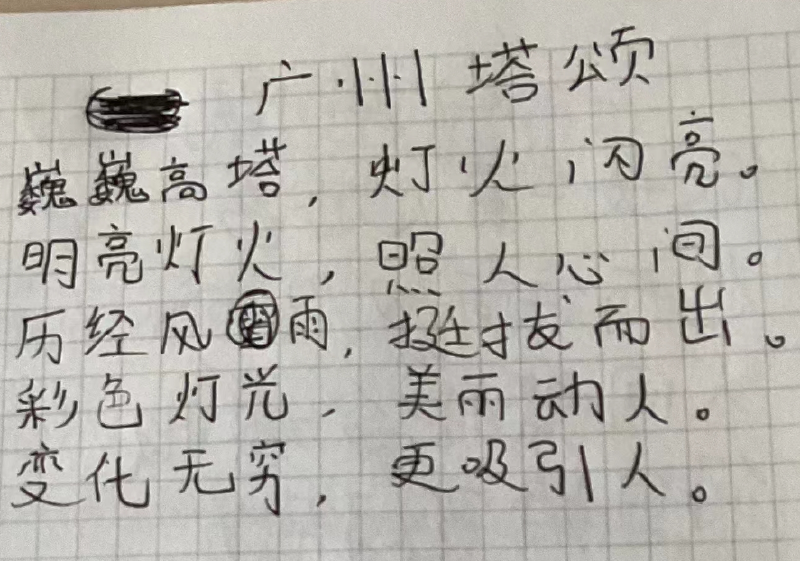 广州塔颂
巍巍高塔,灯火闪亮。
明亮灯火,照人心间。
历经风雨,挺拔而出。
彩色灯光,美丽动人。
变化无穷,更吸引人。